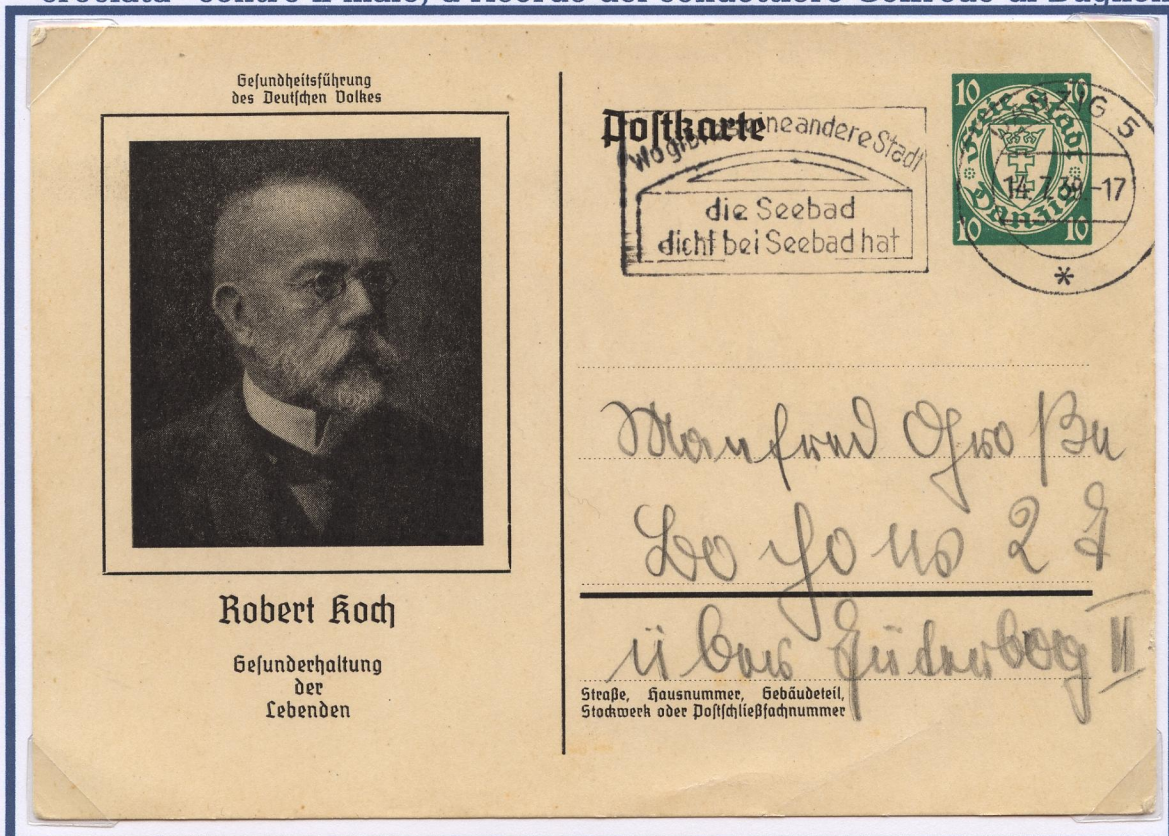 contro il male, a ricordo del condottiero
Gesundheitsführung
des Deutschen Volkes
Robert Koch
Gesunderhaltung
der
Lebenden
Postkarte
Wo gibt es eine andere Stadt
die Seebad
dicht bei Seebad hat
10 10
Freie Stadt
Danzig
10 10
ZIG 5
14.7.39-17
Manfred Große
über Jüterbog II
Straße, Hausnummer, Gebäudeteil,
Stockwerk oder Postschließfachnummer